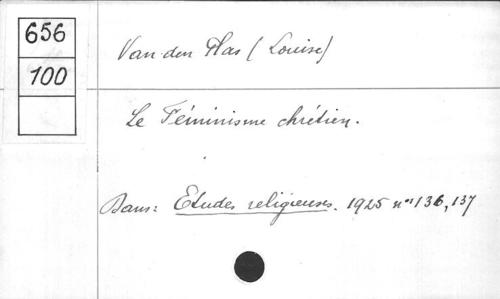 656
100
Van den Plas (Louise)
Le Féminisme chrétien.
Dans: Etudes religieuses. 1925 nos 136, 137